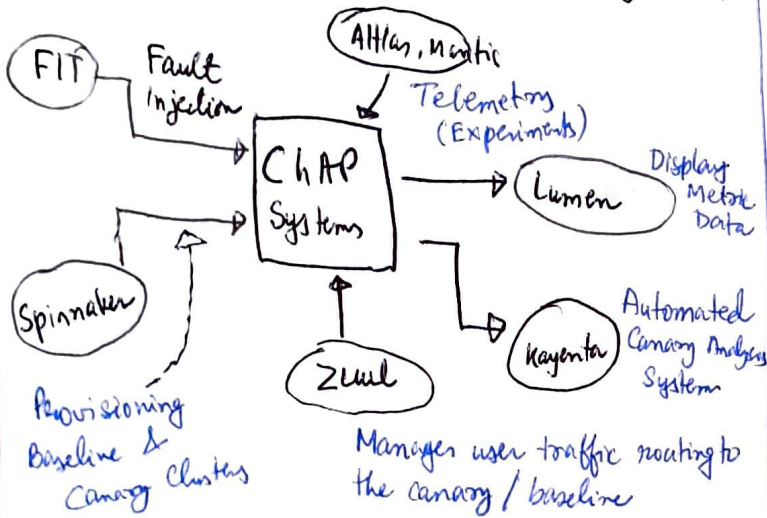 FIT
Fault
Injection
Atlas, Mantis
Telemetry
(Experiments)
ChAP
Systems
Lumen
Display
Metric
Data
Spinnaker
Zuul
Kayenta
Automated
Canary Analysis
System
Provisioning
Baseline &
Canary Clusters
Manages user traffic routing to
the canary / baseline